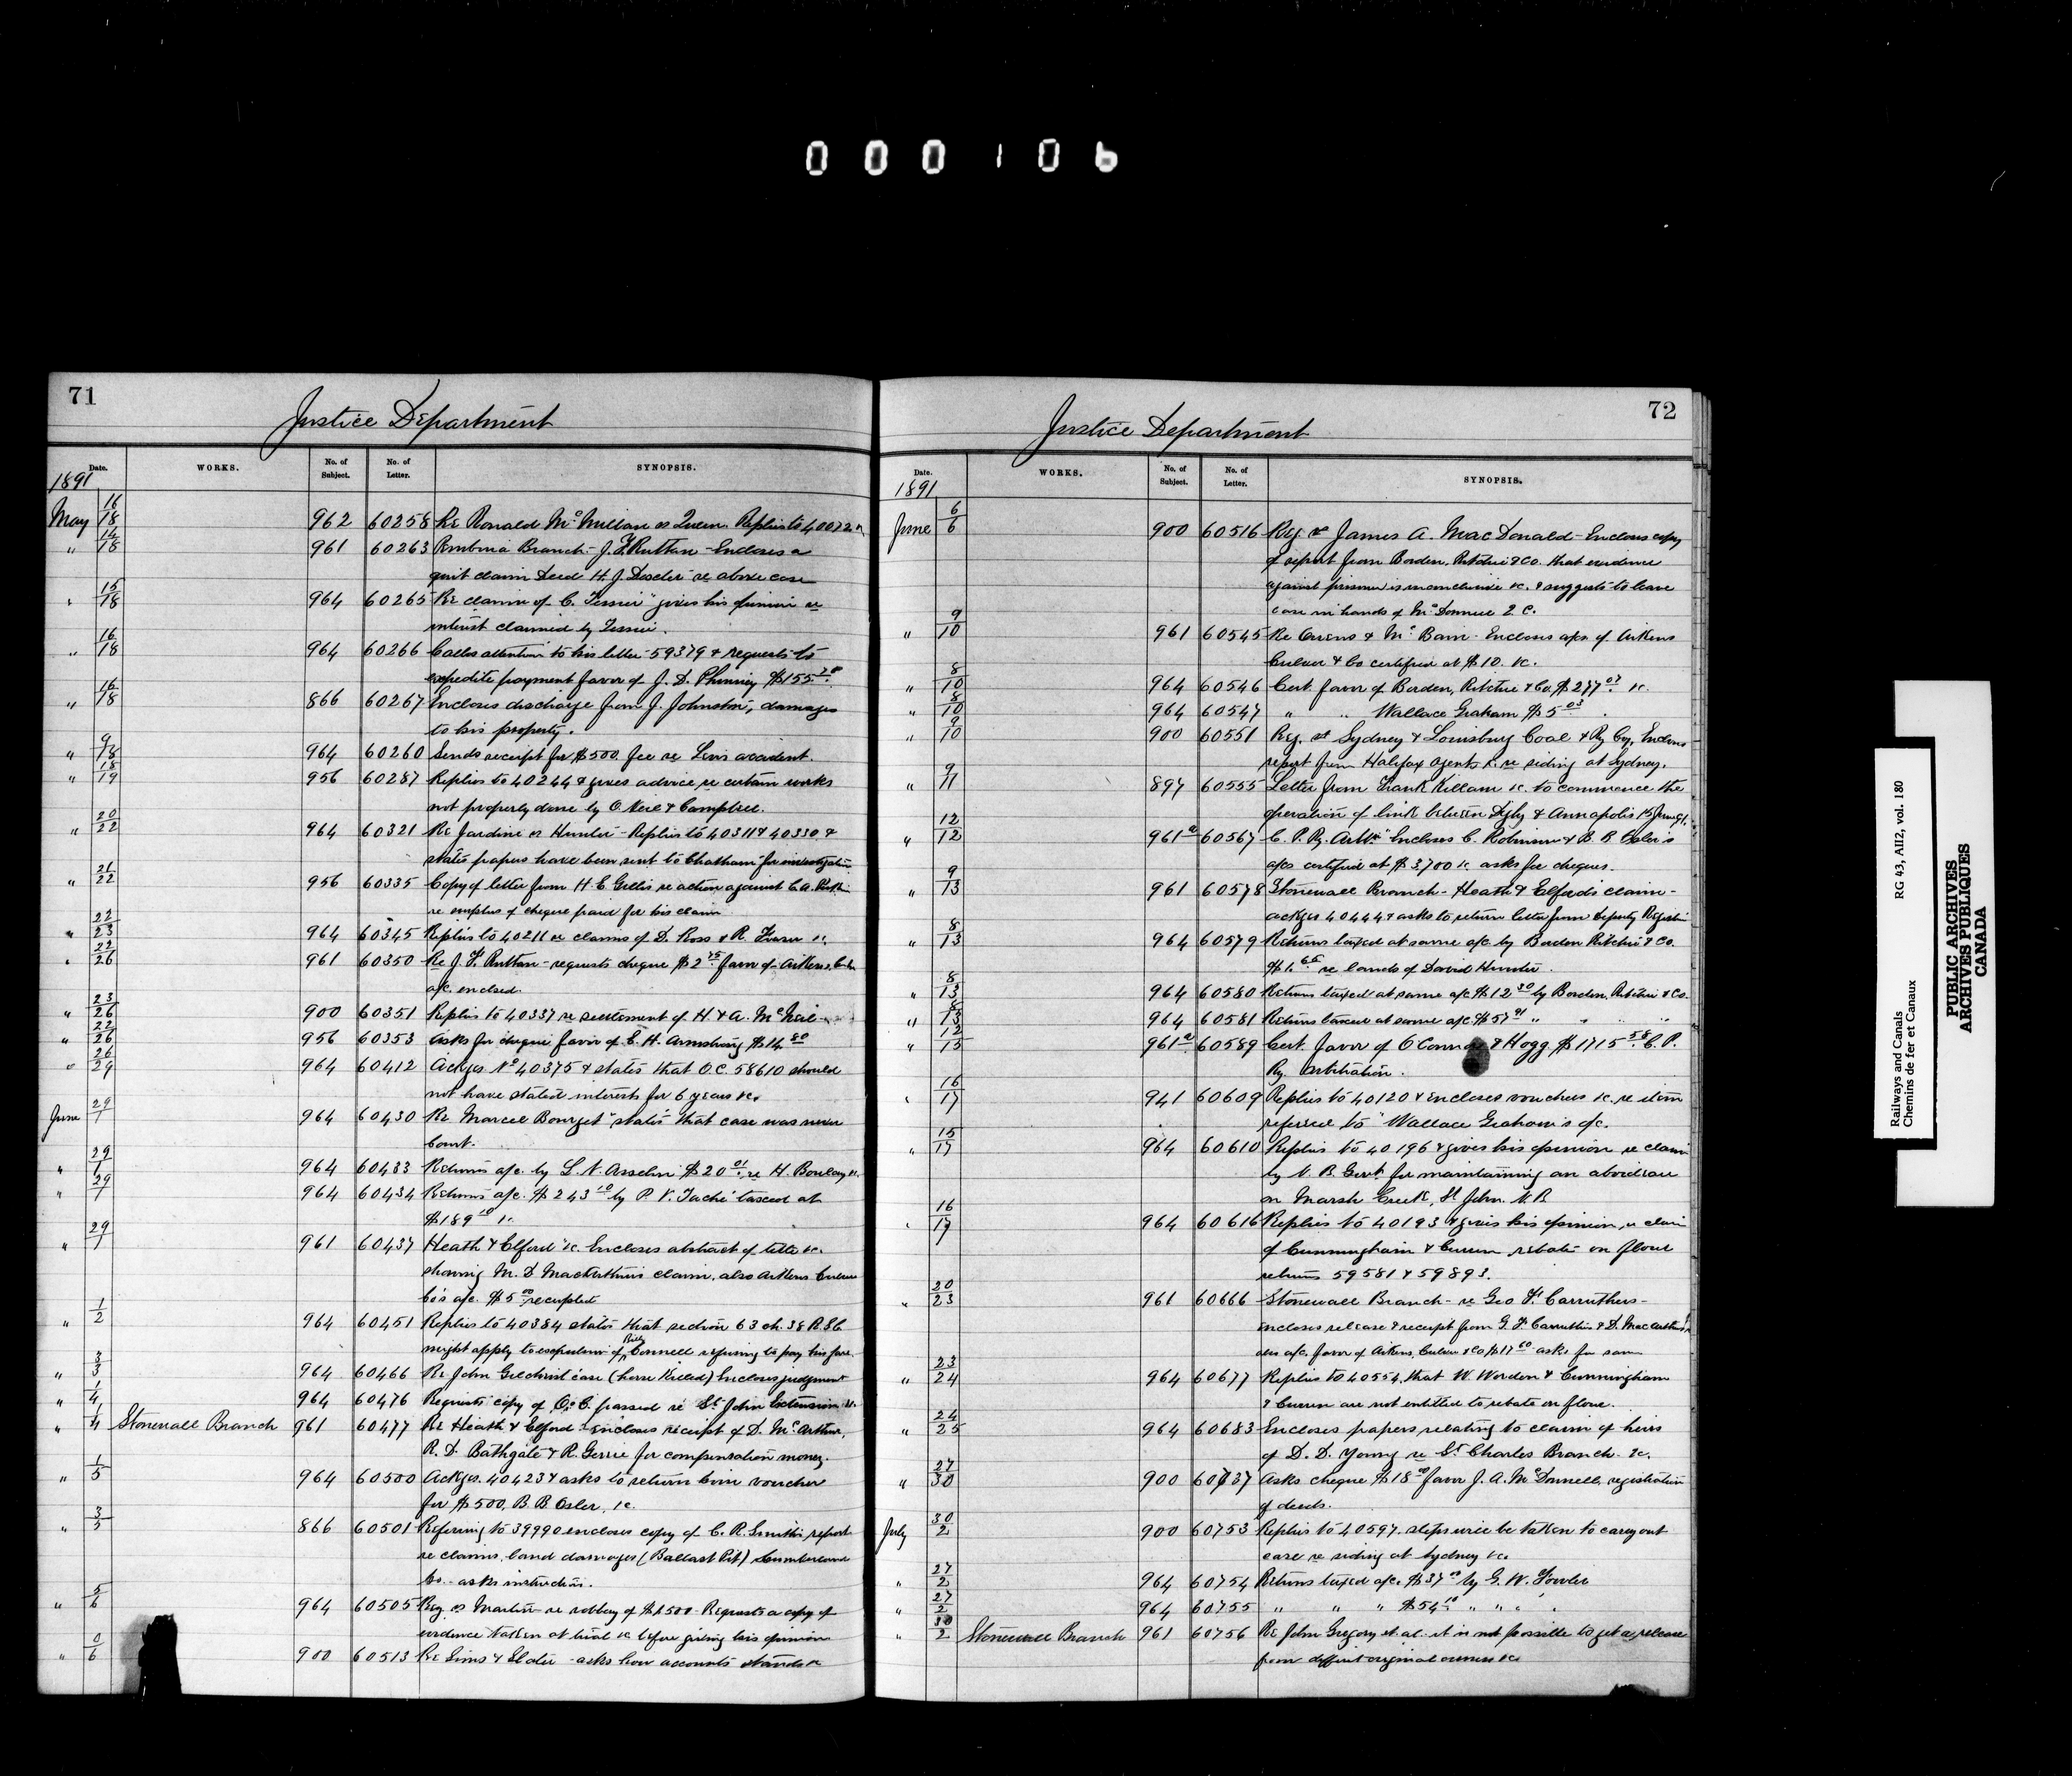 000106
71
Justice Department
Date. WORKS. No. of Subject. No. of Letter. SYNOPSIS.
1891
May 16/18 962 60258 Re Ronald McMillan vs Queen. Replies to 40072 &
" 14/18 961 60263 Pembina Branch - J. F. Ruttan - Encloses a
quit claim Deed H. J. Dexter re above case
" 15/18 964 60265 Re claim of C. Tessier gives his opinion re
interest claimed by Tessier.
" 16/18 964 60266 Calls attention to his letter 59379 & requests to
expedite payment favor of J. D. Phinney $155.20
" 16/18 866 60267 Encloses discharge from J. Johnston, damages
to his property.
" 9/18 964 60260 Sends receipt for $500. fee re Levis accident.
" 18/19 956 60287 Replies to 40244 & gives advice re certain works
not properly done by O. Neil & Campbell.
" 20/22 964 60321 Re Jardine vs Hunter - Replies to 40311 & 40330 &
states papers have been sent to Chatham for investigation
" 21/22 956 60335 Copy of letter from H. E. Gillis re action against C. A.
re surplus of cheque paid for his claim
" 22/23 964 60345 Replies to 40211 re claims of D. Ross & R. Fraser &c.
" 22/26 961 60350 Re J. F. Ruttan - requests cheque $2.75 favor of Aitkens,
a/c. enclosed.
" 23/26 900 60351 Replies to 40337 re settlement of H. & A. McNeil
" 22/26 956 60353 Asks for cheque favor of E. H. Armstrong $14.80
" 26/29 964 60412 Ackges No 40375 & states that O.C. 58610 should
not have stated interests for 6 years &c.
June 29/1 964 60430 Re Marcel Bourget states that case was never
Court.
" 29/1 964 60433 Returns a/c. by L. N. Asselin $20.01, re H. Boulay &c.
" 29/1 964 60434 Returns a/c. $243.10 by P. V. Taché taxed at
$189.10 &c.
" 29/1 961 60437 Heath & Elford &c. Encloses abstract of title &c.
showing M. D. MacArthur's claim, also Aitkens Culver
Co's a/c. $5.00 receipted
" 1/2 964 60451 Replies to 40384 states that section 63 ch. 38 R.S.C
might apply to expulsion of Connell refusing to pay his fare.
" 3/3 964 60466 Re John Gilchrist case (horse killed) Encloses judgment
" 1/4 964 60476 Requests copy of O.C. passed re St. John Extension &c.
" 1/4 Stonewall Branch 961 60477 Re Heath & Elford encloses receipt of D. McArthur,
R. D. Bathgate & R. Gerrie for compensation money.
" 1/5 964 60500 Ackges. 40423 & asks to return him voucher
for $500, B. B. Osler, &c.
" 3/5 866 60501 Referring to 39990 encloses copy of C. R. Smith's report
re claims, land damages (Ballast Pit) Cumberland
Co. - asks instructions.
" 5/6 964 60505 Reg. vs Martin re robbery of $1500. Requests a copy of
evidence taken at trial &c before giving his opinion
" 6 900 60513 Re Sims & Slater - asks how accounts stands &
72
Justice Department
Date. WORKS. No. of Subject. No. of Letter. SYNOPSIS.
1891
June 6/6 900 60516 Reg. vs James A. MacDonald - Encloses copy
of report from Borden, Ritchie & Co. that evidence
against prisoner is inconclusive &c. & suggests to leave
case in hands of McDonnell Q.C.
" 9/10 961 60545 Re Owens & McBain - Encloses a/cs. of Aitkens
Culver & Co certified at $10. &c.
" 8/10 964 60546 Cert. favor of Borden, Ritchie & Co. $277.07 &c.
" 8/10 964 60547 " " Wallace Graham $5.03
" 9/10 900 60551 Reg. vs Sydney & Louisburg Coal & Ry Coy, Encloses
report from Halifax agents &c. re siding at Sydney.
" 9/11 897 60555 Letter from Frank Killam &c. to commence the
operation of link between Digby & Annapolis 15 June 91.
" 12/12 961a 60567 C. P. Ry. Arbtn Encloses C. Robinson & B. B. Osler's
a/cs certified at $3,700 &c. asks for cheques.
" 9/13 961 60578 Stonewall Branch - Heath & Elford's claim -
ackges 40444 & asks to return letter from Deputy Registrar
" 8/13 964 60579 Returns taxed at same a/c. by Borden Ritchie & Co.
$1.65 re lands of David Hunter.
" 8/13 964 60580 Returns taxed at same a/c $12.30 by Borden, Ritchie & Co.
" 8/13 964 60581 Returns taxed at same a/c. $57.91 " " " "
" 12/15 961a 60589 Cert. favor of O'Connor & Hogg $1715.58. C. P.
Ry. Arbitration.
" 16/17 941 60609 Replies to 40120 & encloses vouchers &c. re item
referred to Wallace Graham's a/c.
" 15/17 964 60610 Replies to 40196 & gives his opinion re claim
by N. B. Govt. for maintaining an aboideau
on Marsh Creek, St John. N.B
" 16/17 964 60616 Replies to 40193 & gives his opinion, re claim
of Cunningham & Curren rebate on flour
returns 59581 & 59893.
" 20/23 961 60666 Stonewall Branch - re Geo F. Carruthers -
encloses release & receipt from G. F. Carruthers & D. MacArthur,
also a/c. favor of Aitkens, Culver & Co $17.60 asks for same
" 23/24 964 60677 Replies to 40554, that W. Worden & Cunningham
& Curren are not entitled to rebate on flour.
" 24/25 964 60683 Encloses papers relating to claim of heirs
of D. D. Young re St. Charles Branch. &c.
" 27/30 900 60737 Asks cheque $18.00 favor J. A. McDonnell, registration
of deeds.
July 30/2 900 60753 Replies to 40597. steps will be taken to carry out
case re siding at Sydney &c.
" 27/2 964 60754 Returns taxed a/c. $37.00 by G. W. Fowler
" 27/2 964 60755 " " " $54.10 " " " "
" 30/2 Stonewall Branch 961 60756 Re John Gregory et al. it is not possible to get a release
from different original owners &c
Railways and Canals RG 43, AII2, vol. 180
Chemins de fer et Canaux
PUBLIC ARCHIVES
ARCHIVES PUBLIQUES
CANADA